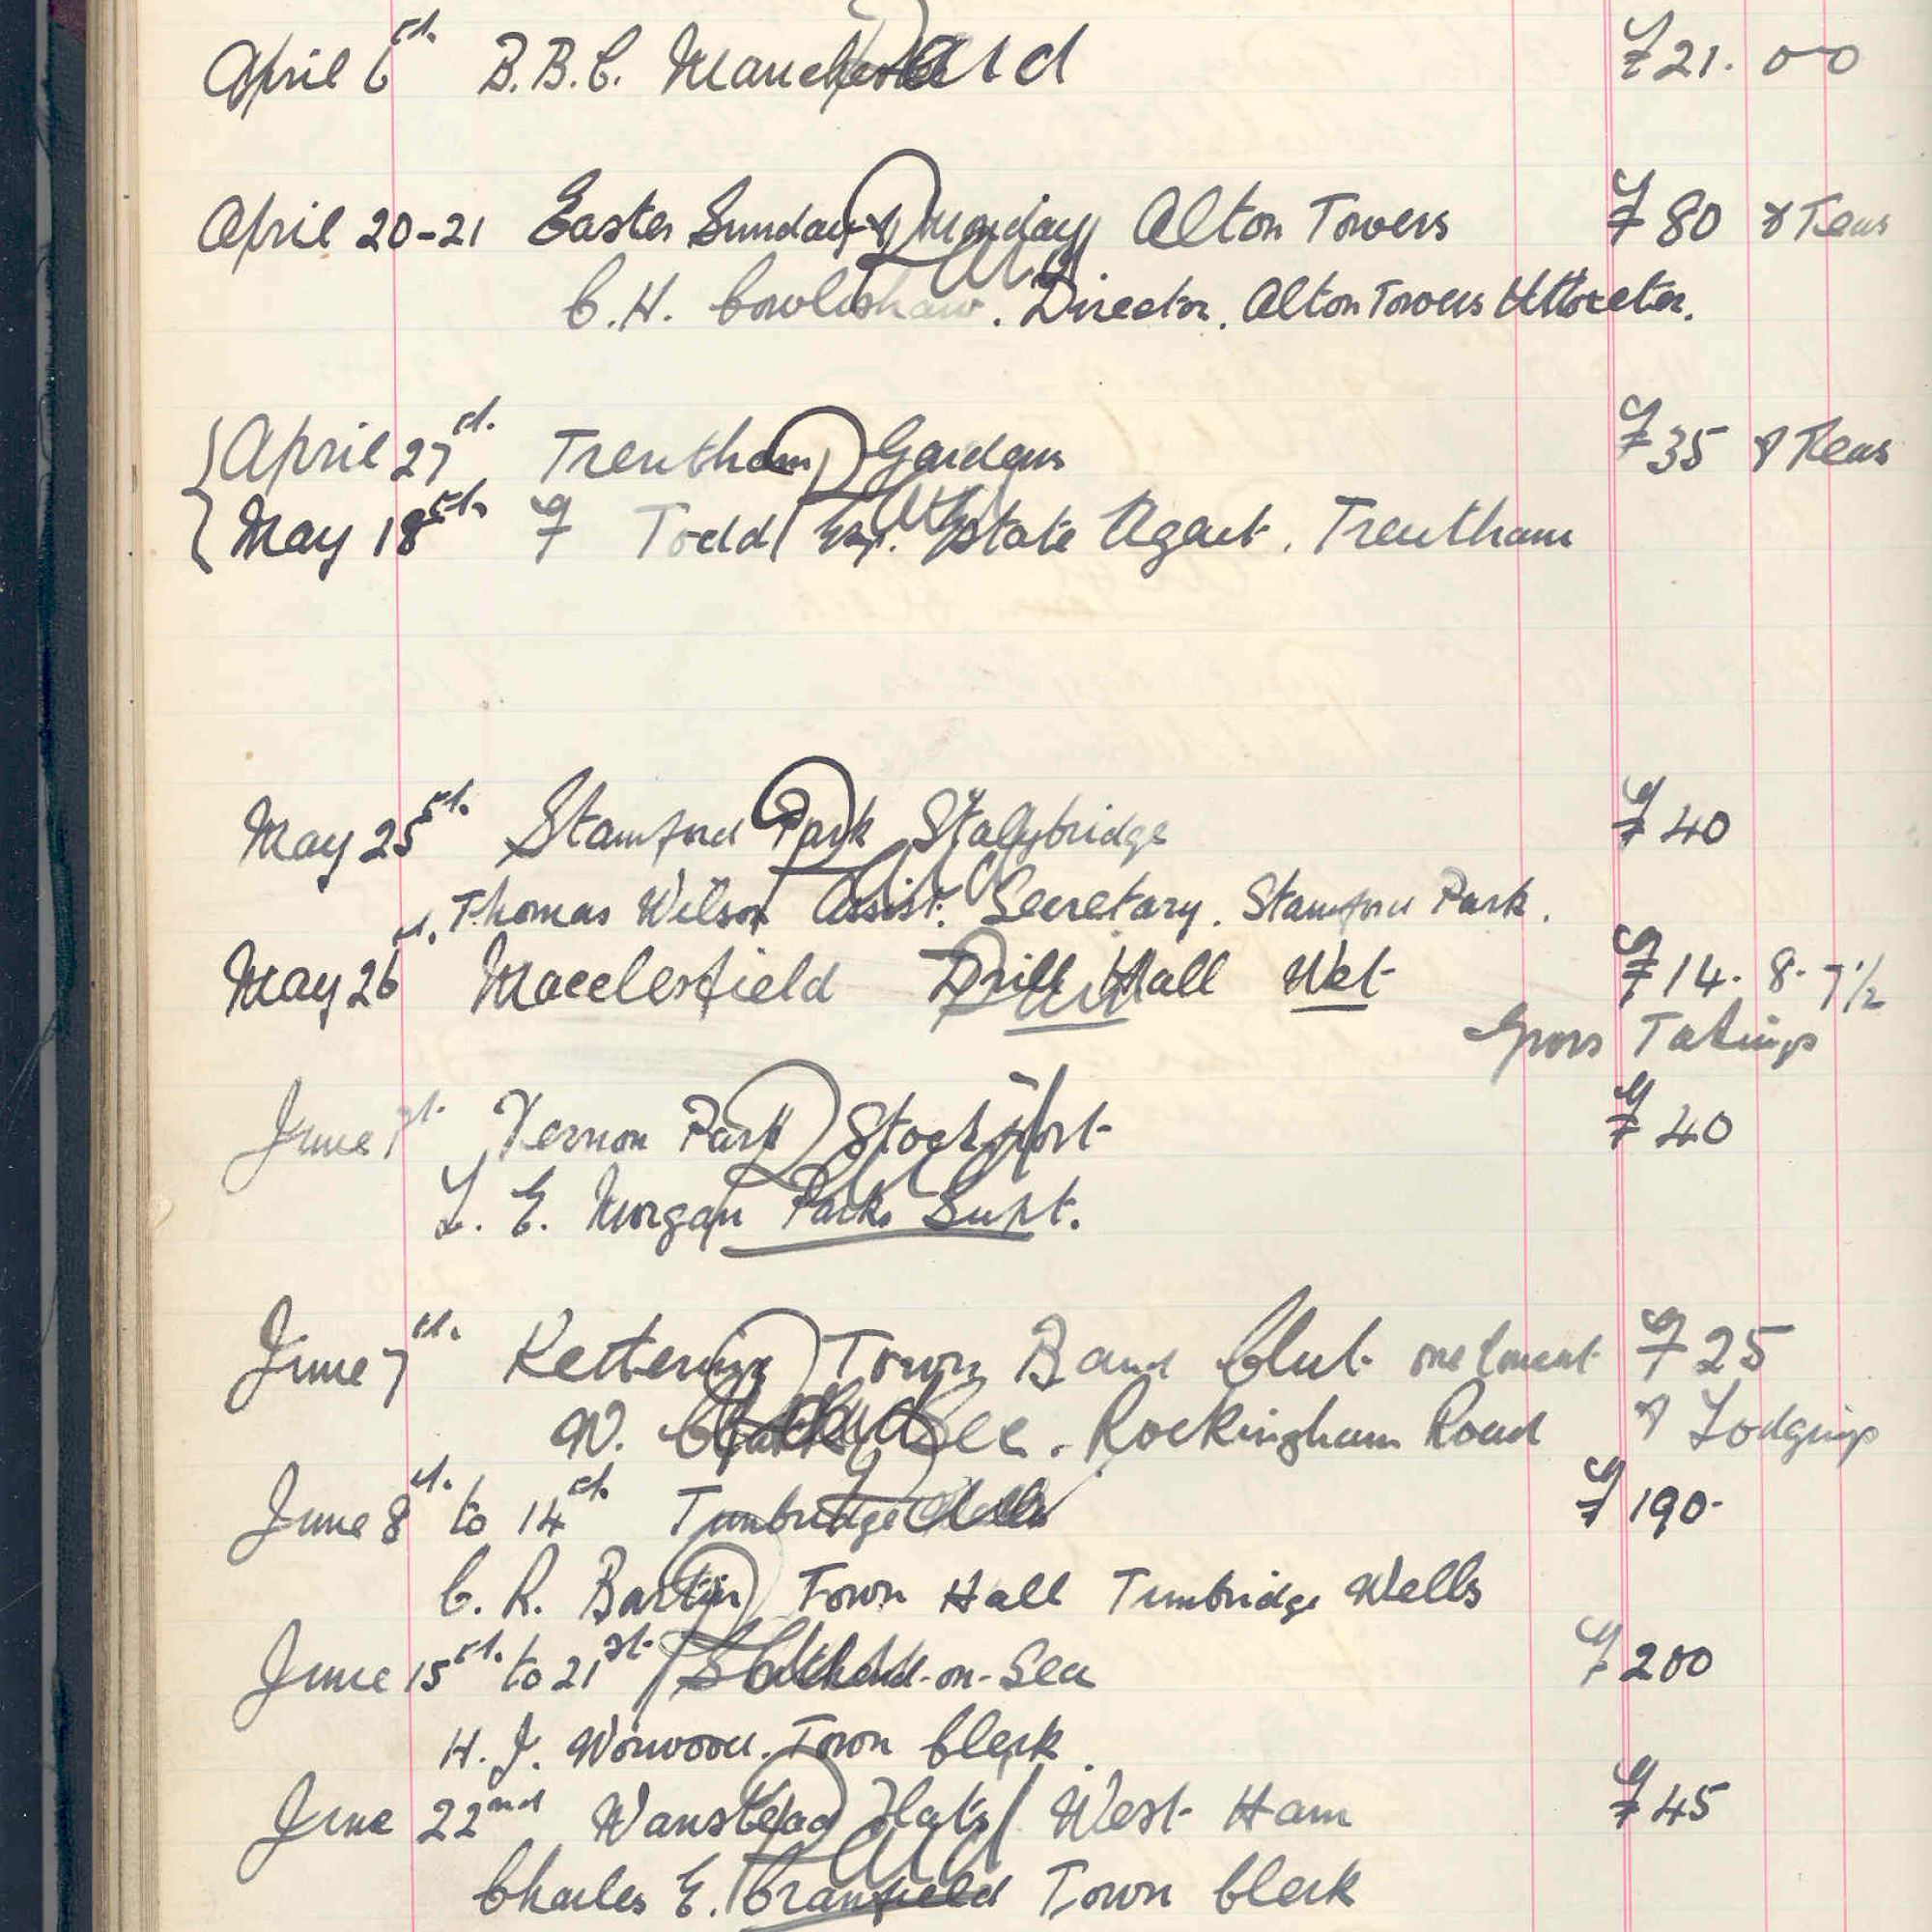 April 6th. B.B.C. Manchester Paid £21. 0 0
April 20-21 Easter Sunday & Monday Alton Towers £80 & Teas
Paid
C.H. Cowlishaw. Director. Alton Towers Uttoxeter.
{April 27th. Trentham Gardens £35 & Teas
Paid
{May 18th. F Todd Esq. Estate Agent. Trentham
May 25th. Stamford Park Stalybridge £40
Paid
Thomas Wilson Assist. Secretary. Stamford Park.
May 26th. Macclesfield Drill Hall Wet £14. 8. 7½
Paid
Gross Takings
June 1st. Vernon Park Stockport £40
Paid
L. E. Morgan Parks Supt.
June 7th. Kettering Town Band Club. £25
Paid
W. Sec. Rockingham Road & Lodgings
June 8th. to 14th Tunbridge Wells £190-
Paid
C. R. Town Hall Tunbridge Wells
June 15th. to 21st Southend-on-Sea £200
Paid
H. J. Worwood. Town Clerk.
June 22nd Wanstead Flats West Ham £45
Paid
Charles E. Cranfield Town Clerk